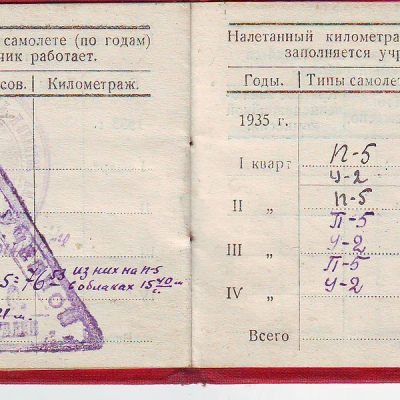 самолете (по годам)
чик работает.
сов. Километраж.
5=76 53 из них на П-5
в облаках 15 40 м
Налетанный километра
заполняется учр
Годы. Типы самолет
1935 г.
I кварт П-5
У-2
II „ П-5
П-5
III „ У-2
П-5
IV „ У-2
Всего